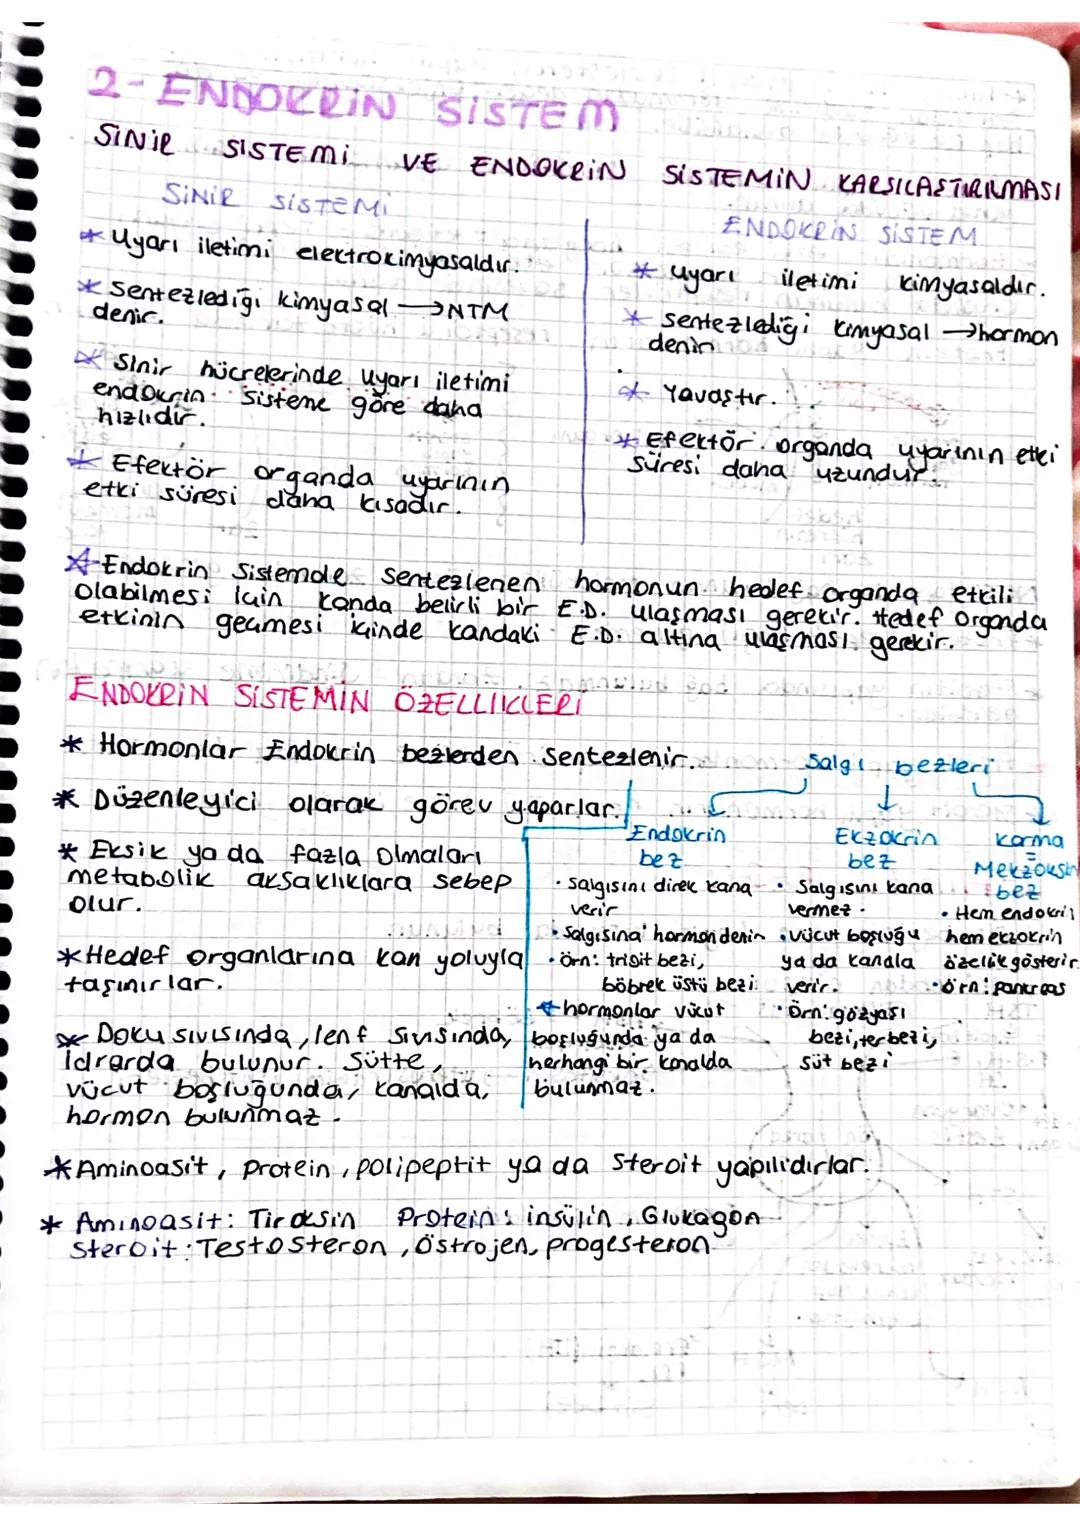 2- ENDOKRİN SİSTEM
SİNİR SİSTEMİ VE ENDOKRİN SİSTEMİN KARŞILAŞTIRILMASI
SİNİR SİSTEMİ
* Uyarı iletimi elektrokimyasaldır.
* Sentezlediği kimyasal → NTM
denir.
* Sinir hücrelerinde uyarı iletimi
endokrin sisteme göre daha
hızlıdır.
* Efektör organda uyarının
etki süresi daha kısadır.
ENDOKRİN SİSTEM
* uyarı iletimi kimyasaldır.
* sentezlediği kimyasal → hormon
denir
* Yavaştır.
* Efektör organda uyarının etki
süresi daha uzundur.
* Endokrin Sistemde sentezlenen hormonun hedef organda etkili
olabilmesi için kanda belirli bir E.D. ulaşması gerekir. Hedef Organda
etkinin geçmesi içinde kandaki E.D. altına ulaşması gerekir.
ENDOKRİN SİSTEMİN ÖZELLİKLERİ
* Hormonlar Endokrin bezlerden sentezlenir.
* Düzenleyici olarak görev yaparlar.
* Eksik ya da fazla olmaları
metabolik aksaklıklara sebep
olur.
* Hedef organlarına kan yoluyla
taşınırlar.
* Doku sıvısında, lenf sıvısında,
idrarda bulunur. Sütte,
vücut boşluğunda, kanalda,
hormon bulunmaz.
Salgı bezleri
Endokrin
bez
• Salgısını direk kana
verir
• Salgısına hormon denir
• örn: trioit bezi,
böbrek üstü bezi
* hormonlar vücut
boşluğunda ya da
herhangi bir kanalda
bulunmaz.
Ekzokrin
bez
• Salgısını kana
vermez.
• vücut boşluğu
ya da kanala
verir.
• Örn: gözyaşı
bezi, ter bezi,
süt bezi
Karma
=
Mekzoksin
bez
• Hem endokrin
hem ekzokrin
özellik gösterir.
• örn: pankreas
* Aminoasit, Protein, polipeptit ya da Steroit yapılıdırlar.
* Aminoasit: Tiroksin Protein: insülin, Glukagon
Steroit: Testosteron, östrojen, progesteron